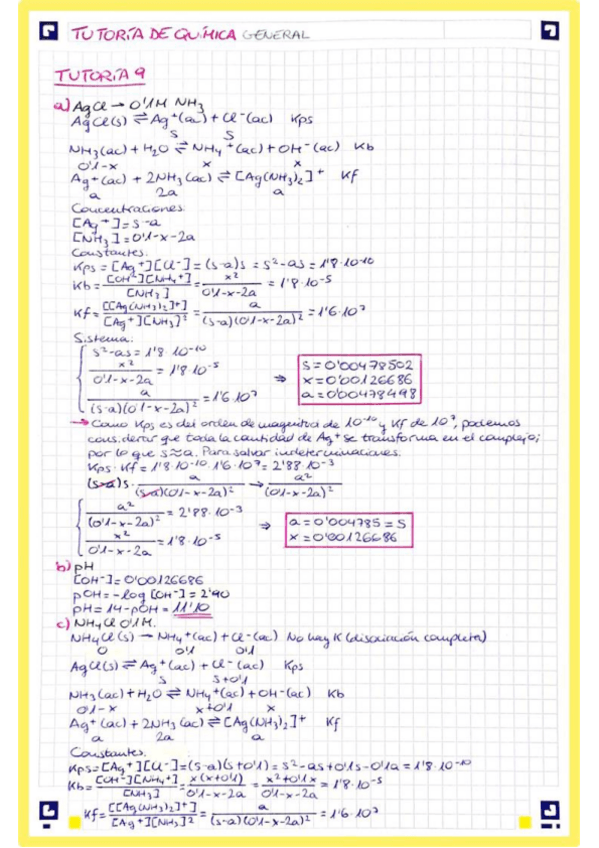 TUTORÍA DE QUÍMICA GENERAL
TUTORÍA 9
a) AgCl → 0'1M NH₃
AgCl(s) ⇌ Ag⁺(ac) + Cl⁻(ac) Kps
S S
NH₃(ac) + H₂O ⇌ NH₄⁺(ac) + OH⁻(ac) Kb
0'1-x x x
Ag⁺(ac) + 2NH₃(ac) ⇌ [Ag(NH₃)₂]⁺ Kf
a 2a a
Concentraciones:
[Ag⁺] = s-a
[NH₃] = 0'1-x-2a
Constantes:
Kps = [Ag⁺][Cl⁻] = (s-a)s = s²-as = 1'8·10⁻¹⁰
Kb = [OH⁻][NH₄⁺]/[NH₃] = x²/(0'1-x-2a) = 1'8·10⁻⁵
Kf = [[Ag(NH₃)₂]⁺]/[Ag⁺][NH₃]² = a/(s-a)(0'1-x-2a)² = 1'6·10⁷
Sistema:
s²-as = 1'8·10⁻¹⁰
x²/(0'1-x-2a) = 1'8·10⁻⁵
a/(s-a)(0'1-x-2a)² = 1'6·10⁷
⇒ s = 0'00478502
x = 0'00126686
a = 0'00478498
→ Como Kps es del orden de magnitud de 10⁻¹⁰ y Kf de 10⁷, podemos
considerar que toda la cantidad de Ag⁺ se transforma en el complejo;
por lo que s≈a. Para salvar indeterminaciones:
Kps·Kf = 1'8·10⁻¹⁰·1'6·10⁷ = 2'88·10⁻³
(s-a)s · a/(s-a)(0'1-x-2a)² → a²/(0'1-x-2a)²
a²/(0'1-x-2a)² = 2'88·10⁻³
x²/(0'1-x-2a) = 1'8·10⁻⁵
⇒ a = 0'004785 = s
x = 0'00126686
b) pH
[OH⁻] = 0'00126686
pOH = -log [OH⁻] = 2'90
pH = 14-pOH = 11'10
c) NH₄Cl 0'1M.
NH₄Cl(s) → NH₄⁺(ac) + Cl⁻(ac) No hay K (disociación completa)
0 0'1 0'1
AgCl(s) ⇌ Ag⁺(ac) + Cl⁻(ac) Kps
s s+0'1
NH₃(ac) + H₂O ⇌ NH₄⁺(ac) + OH⁻(ac) Kb
0'1-x x+0'1 x
Ag⁺(ac) + 2NH₃(ac) ⇌ [Ag(NH₃)₂]⁺ Kf
a 2a a
Constantes:
Kps = [Ag⁺][Cl⁻] = (s-a)(s+0'1) = s²-as+0'1s-0'1a = 1'8·10⁻¹⁰
Kb = [OH⁻][NH₄⁺]/[NH₃] = x(x+0'1)/(0'1-x-2a) = x²+0'1x/(0'1-x-2a) = 1'8·10⁻⁵
Kf = [[Ag(NH₃)₂]⁺]/[Ag⁺][NH₃]² = a/(s-a)(0'1-x-2a)² = 1'6·10⁷